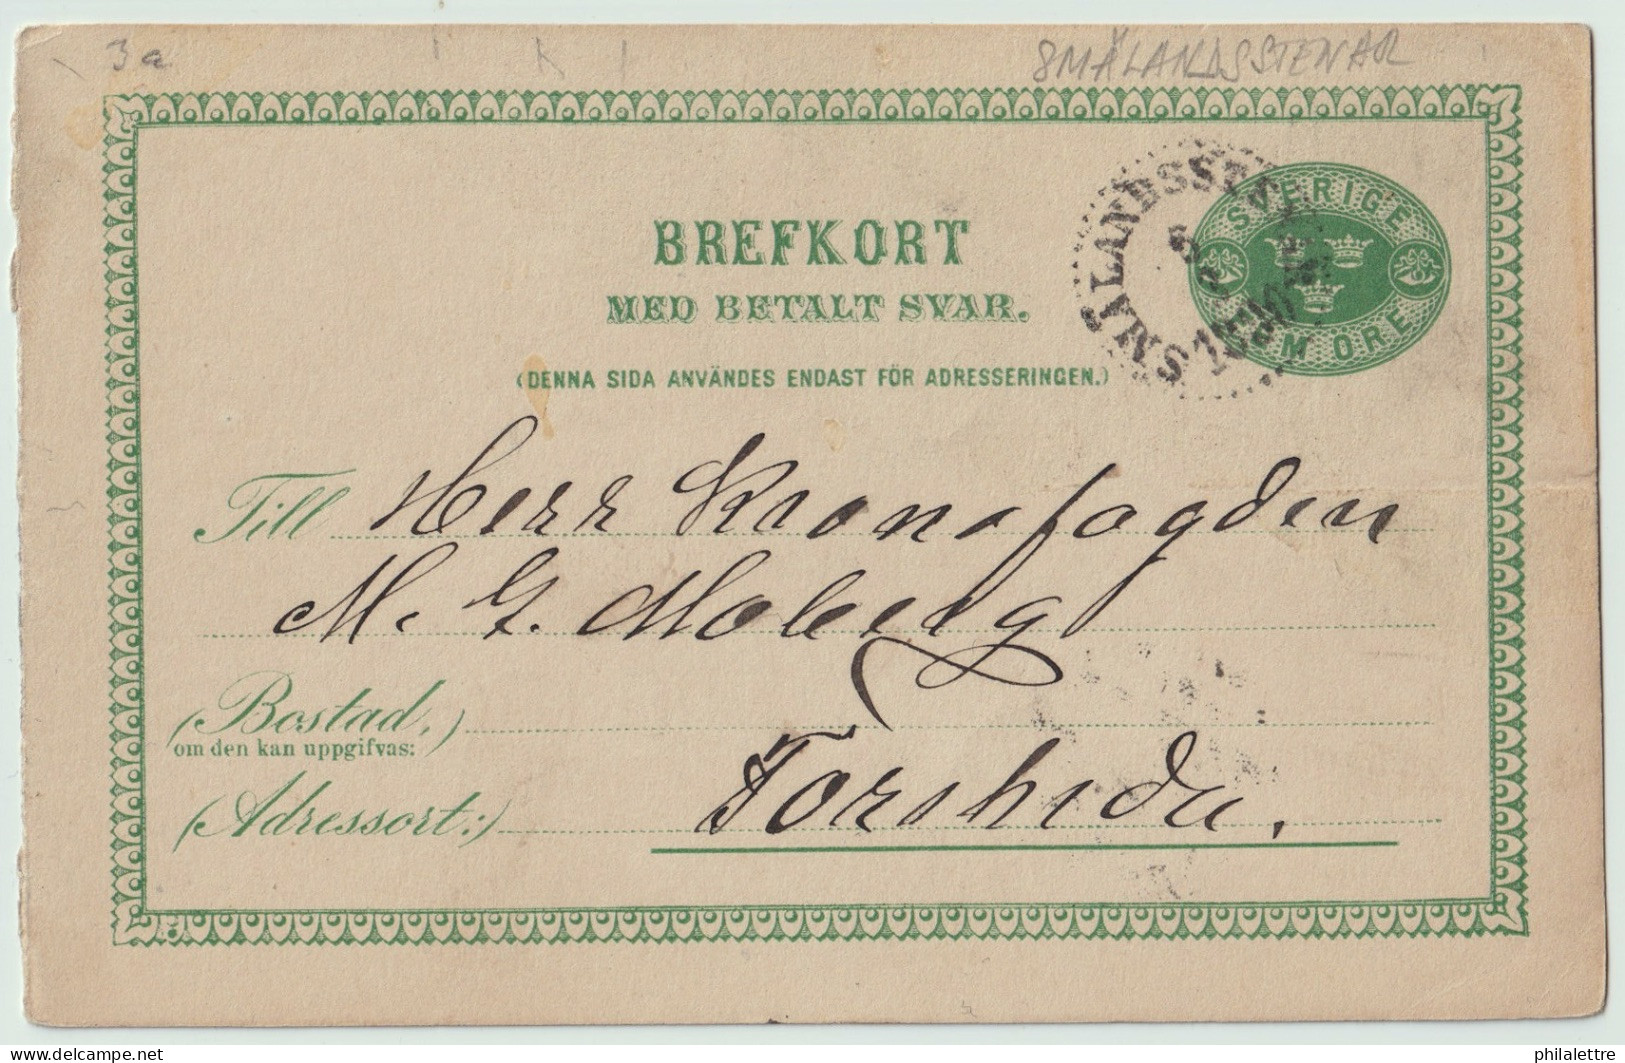 3a
SMÅLANDSSTENAR
BREFKORT
MED BETALT SVAR.
(DENNA SIDA ANVÄNDES ENDAST FÖR ADRESSERINGEN.)
SVERIGE
FEM ÖRE
SMÅLANDSSTENAR
Till Herr Kronofogden
M. G. Moberg
(Bostad,)
om den kan uppgifvas:
(Adressort:) Forsheda.
delcampe.net
philalettre